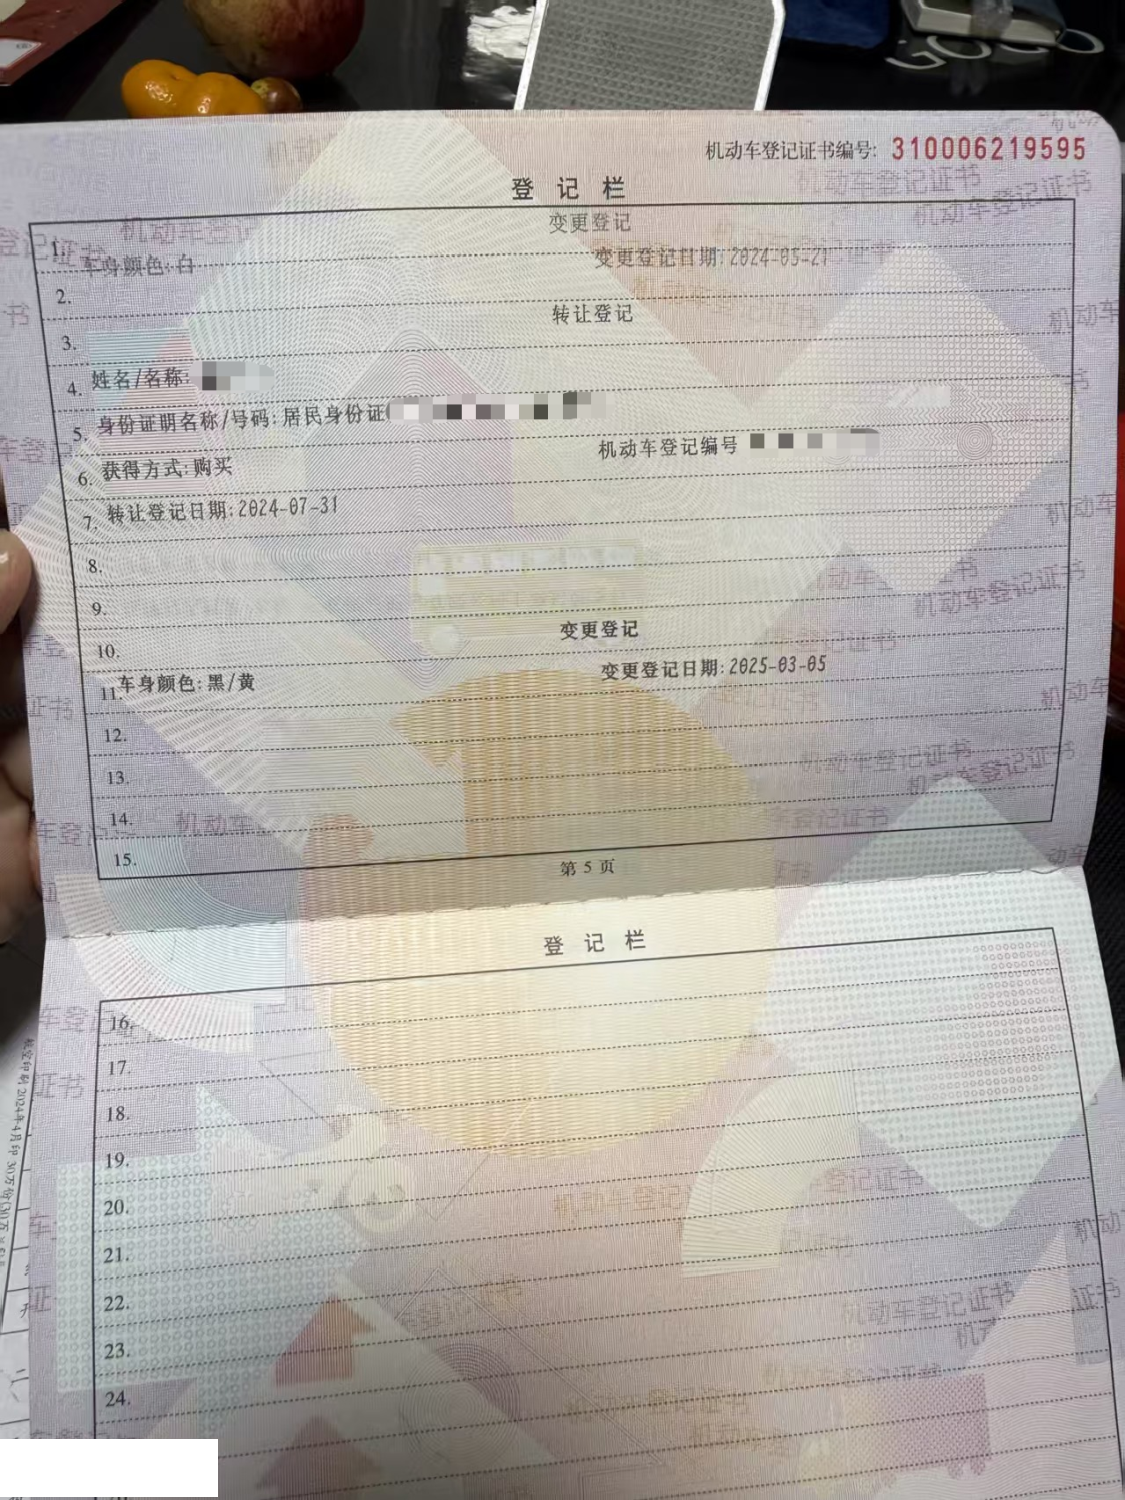 机动车登记证书编号: 310006219595
登记栏
变更登记
1. 车身颜色:白 变更登记日期:2024-05-21
2.
转让登记
3.
4. 姓名/名称:
5. 身份证明名称/号码:居民身份证
机动车登记编号
6. 获得方式:购买
7. 转让登记日期:2024-07-31
8.
9.
变更登记
10.
11. 车身颜色:黑/黄 变更登记日期:2025-03-05
12.
13.
14.
15.
第 5 页
登记栏
16.
17.
18.
19.
20.
21.
22.
23.
24.